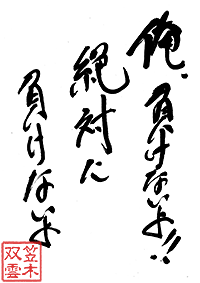 俺、負けないよ!!
絶対に
負けないよ
笠木
双雲